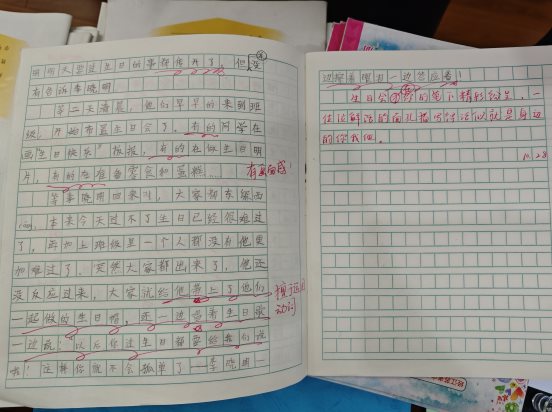 明明天要过生日的事传开了。但没
有告诉李晓明。
第二天清晨，他们早早的来到班
级，开始布置生日会了。有的同学在
画生日快乐板报，有的在做生日明
片，有的在准备零食和蛋糕……
有画面感
等李晓明回来时，大家都东躲西
本来今天过不了生日已经很难过
了，再加上班级里一个人都没有他更
加难过了。突然大家都出来了，他还
没反应过来，大家就给他带上了他们
一起做的生日帽，还一边唱着生日歌
一边说：“以后你过生日都要给我们说
啦！这样你就不会孤单了——李晓明一
擅于运用
动词
边擦着眼泪一边答应着！
生日会在你的笔下精彩纷呈，一
位位鲜活的面孔描写得好似就是身边
的你我他。
10.28